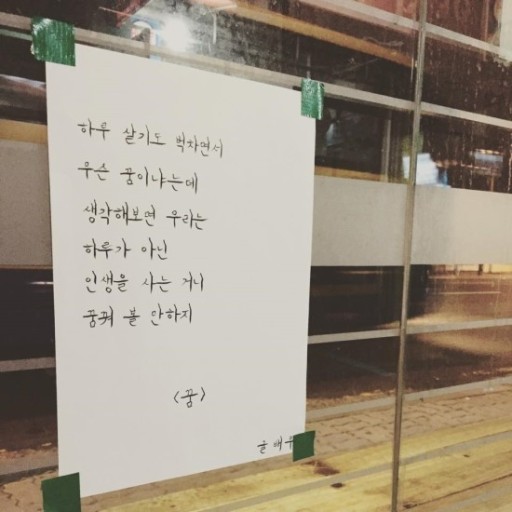 하루 살기도 벅차면서
무슨 꿈이냐는데
생각해보면 우리는
하루가 아닌
인생을 사는 거니
꿈꿔 볼 만하지
<꿈>
글배우